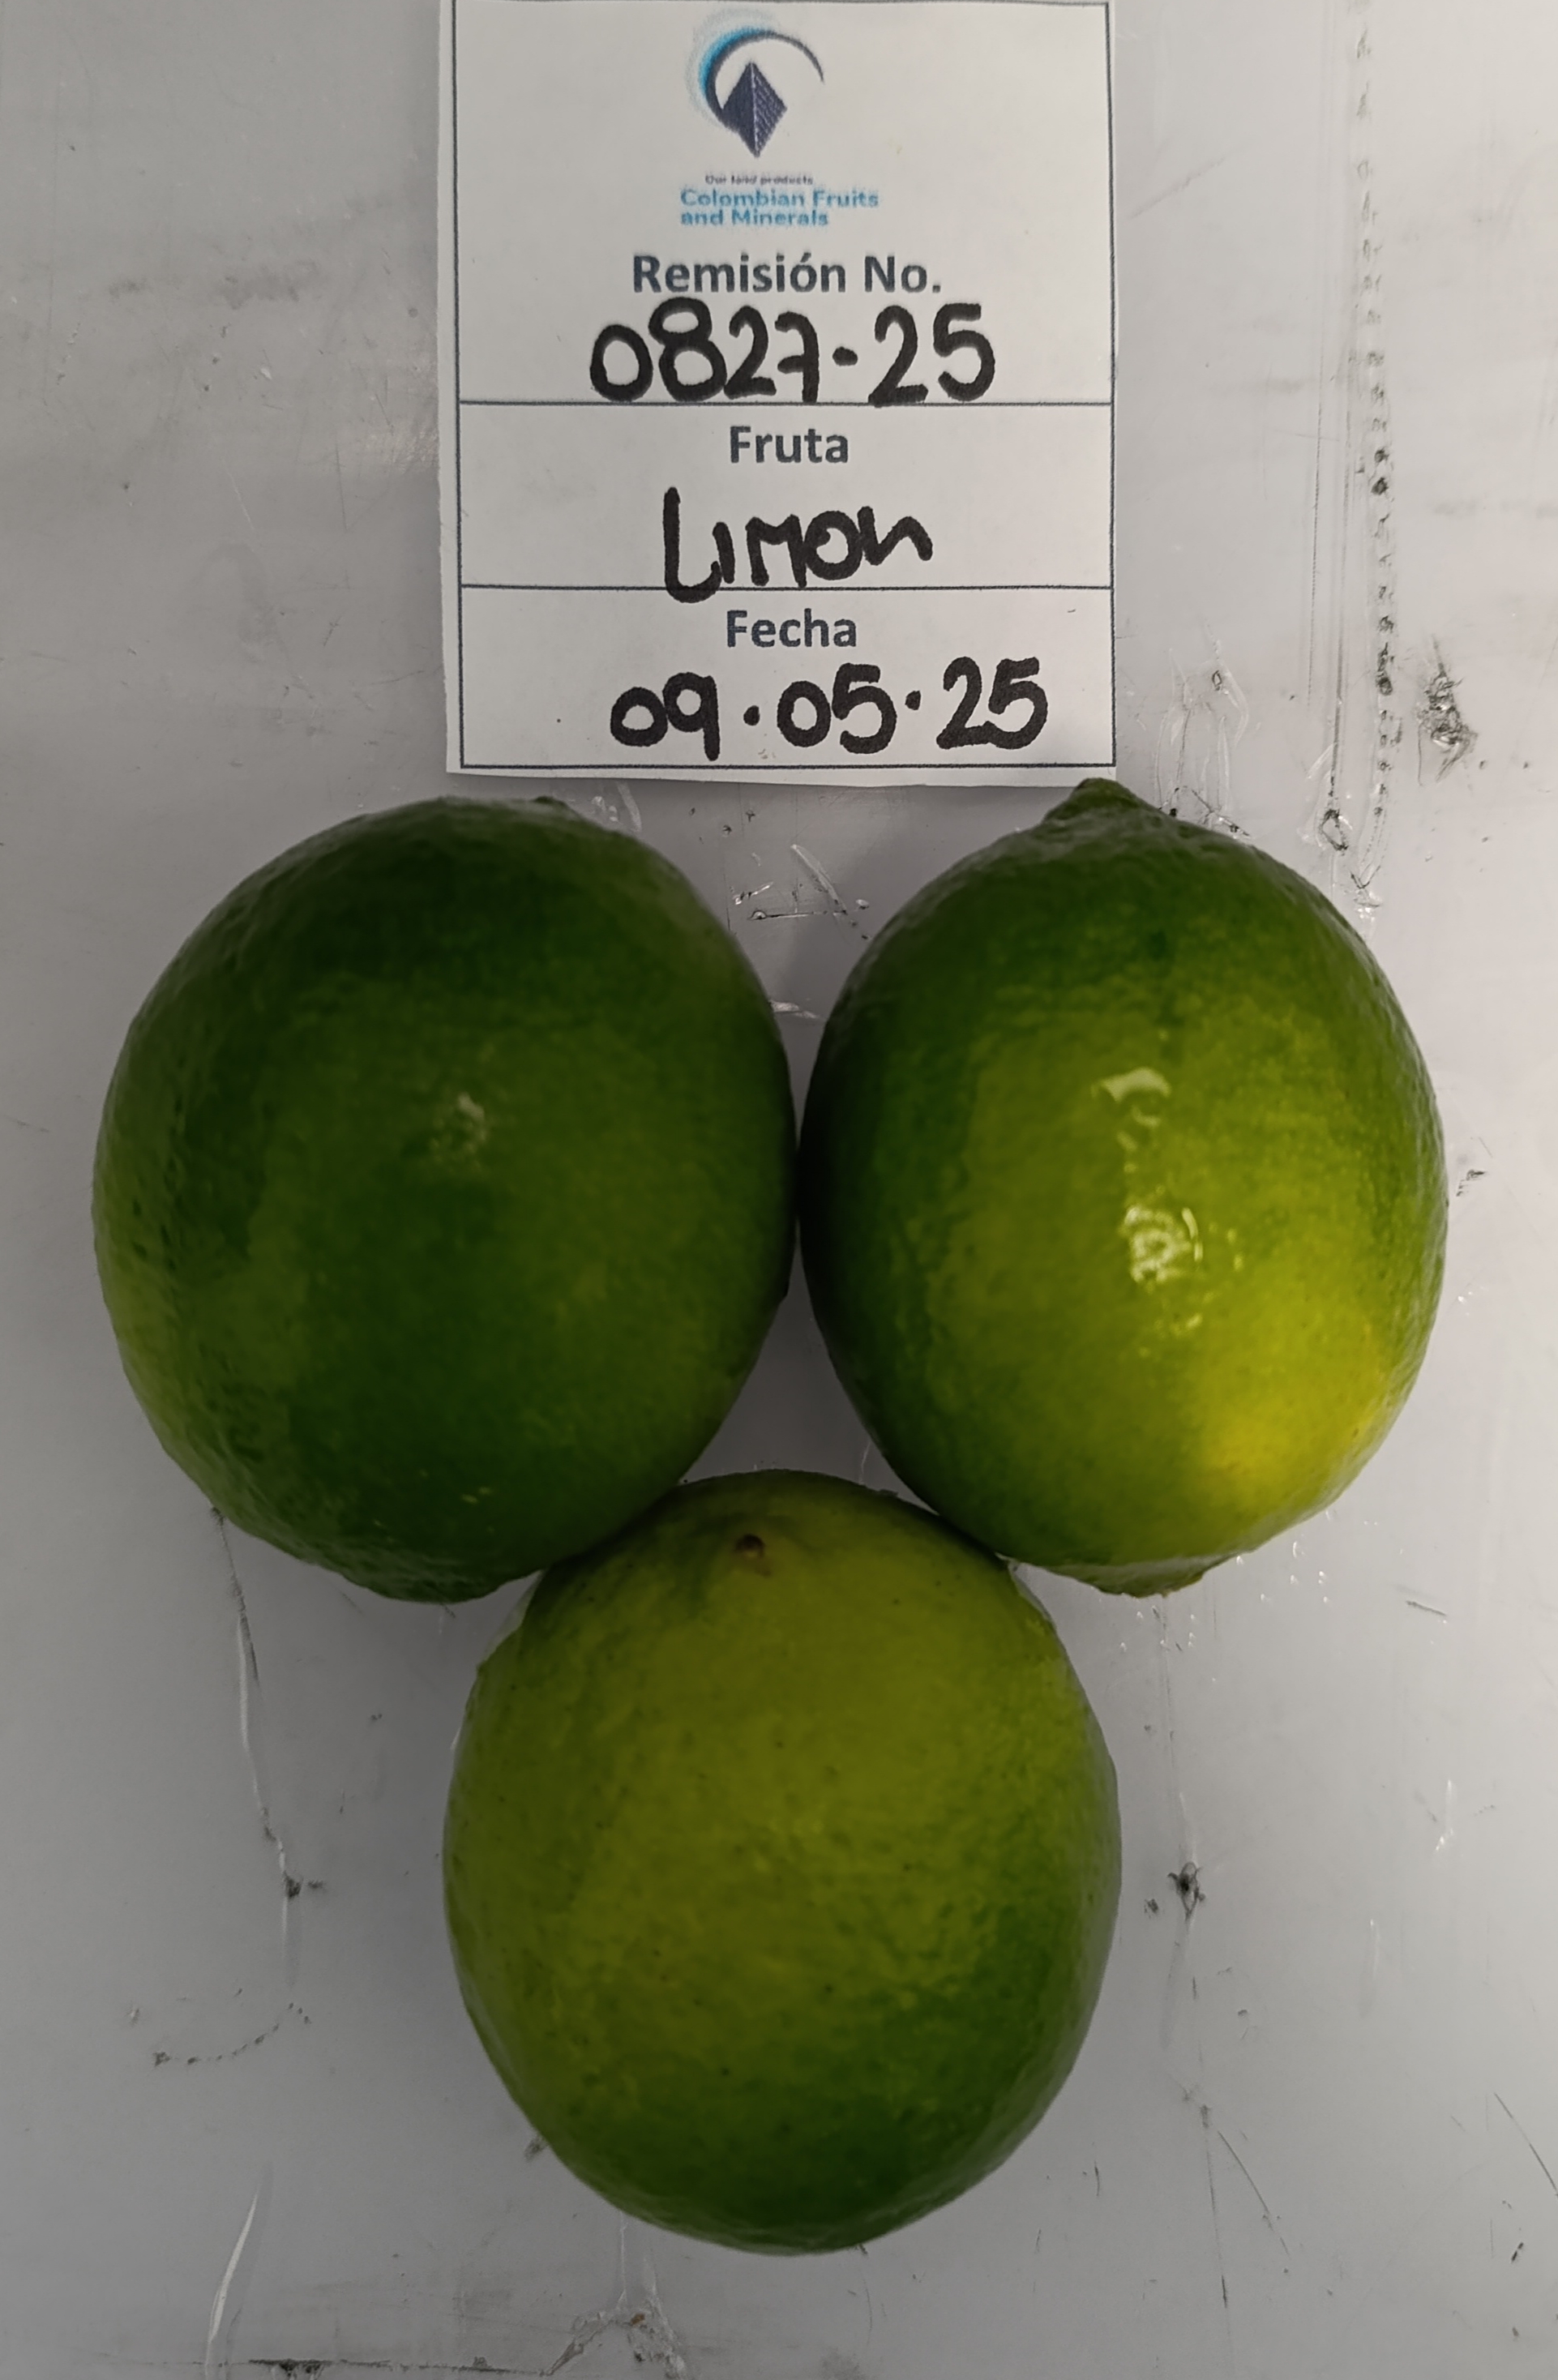 Our land products
Colombian Fruits
and Minerals
Remisión No.
0827-25
Fruta
LIMON
Fecha
09.05.25